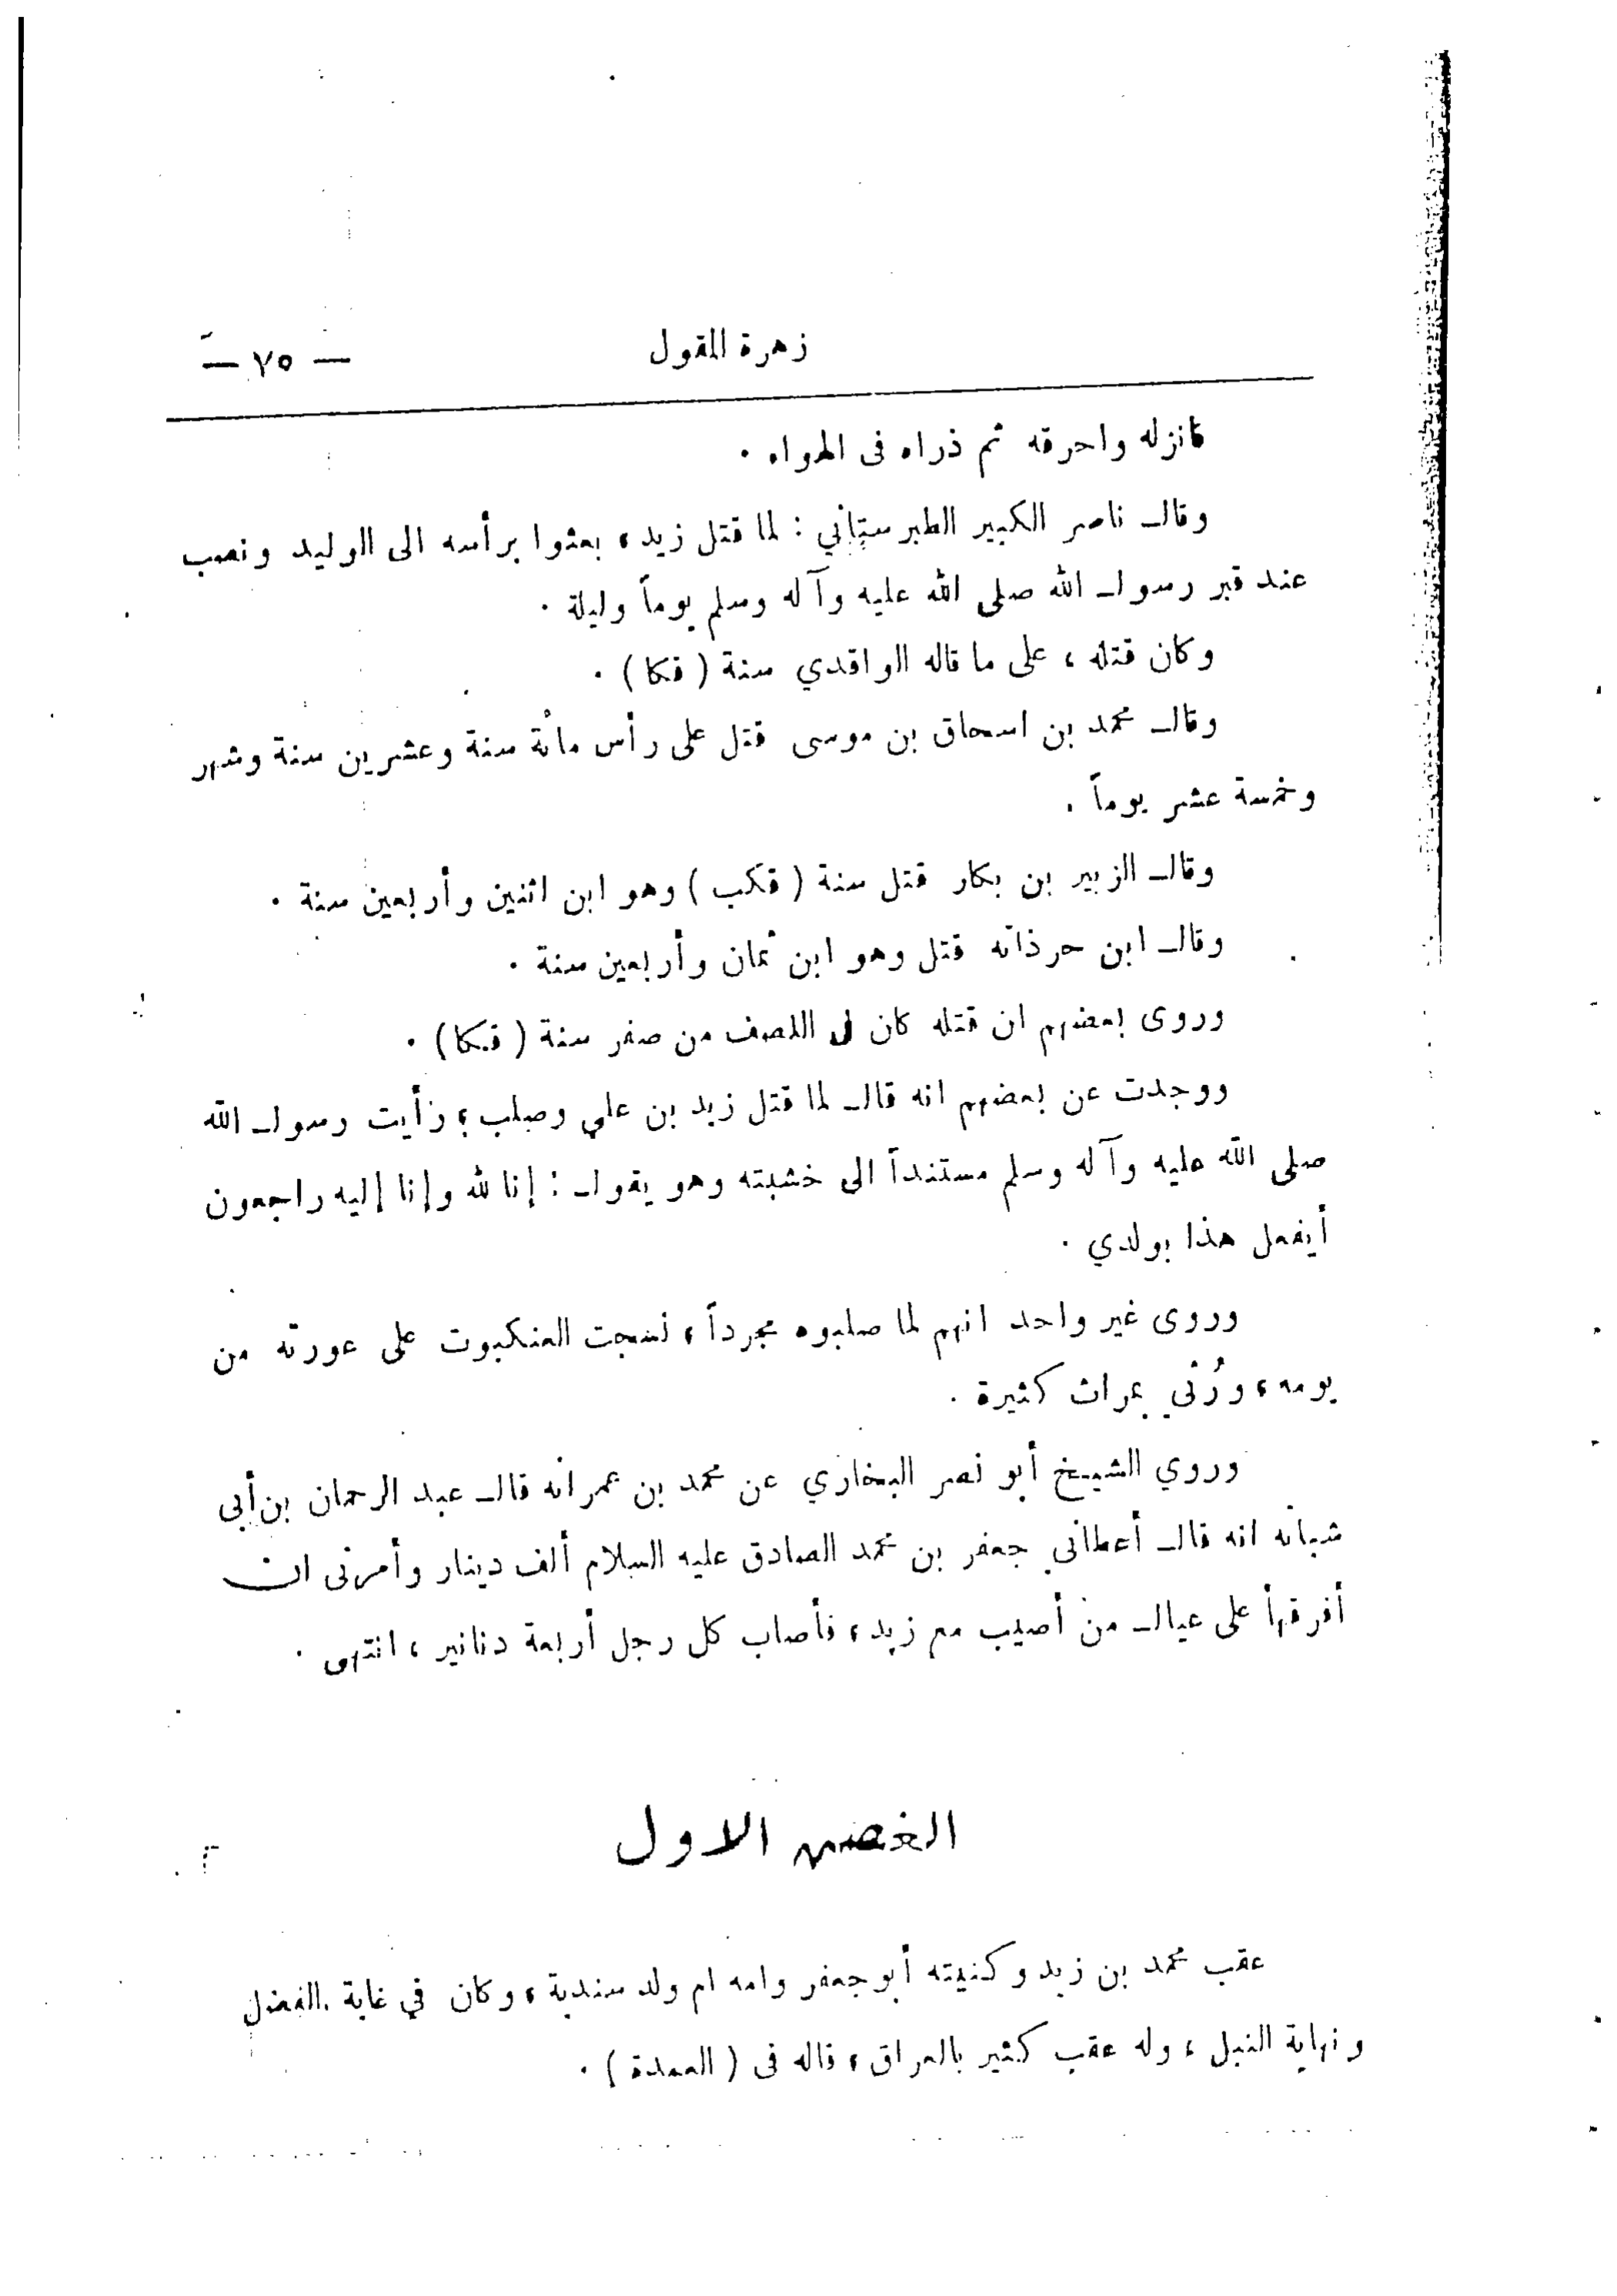 زهرة المقول
— ٧٥ —
فانزله واحرقه ثم ذراه فى الهواء .
وقال ناصر الكبير الطبرستاني : لما قتل زيد ، بعثوا برأسه الى الوليد ونصب
عند قبر رسول الله صلى الله عليه وآله وسلم يوماً وليلة .
وكان قتله ، على ما قاله الواقدي سنة ( قكا ) .
وقال محمد بن اسحاق بن موسى قتل على رأس مائة سنة وعشرين سنة وشهر
وخمسة عشر يوماً .
وقال الزبير بن بكار قتل سنة ( قكب ) وهو ابن اثنين وأربعين سنة .
وقال ابن حرذاته قتل وهو ابن ثمان وأربعين سنة .
وروى بعضهم ان قتله كان فى النصف من صفر سنة ( قكا ) .
ووجدت عن بعضهم انه قال لما قتل زيد بن علي وصلب ؛ رأيت رسول الله
صلى الله عليه وآله وسلم مستنداً الى خشبته وهو يقول : إنا لله وإنا إليه راجعون
أيفعل هذا بولدي .
وروى غير واحد انهم لما صلبوه مجرداً ، نسجت العنكبوت على عورته من
يومه ، ورُئي بمراث كثيرة .
وروي الشيخ أبو نصر البخاري عن محمد بن عمر انه قال عبد الرحمان بن أبي
شبانه انه قال أعطاني جعفر بن محمد الصادق عليه السلام ألف دينار وأمرنى ان
أفرقها على عيال من أصيب مع زيد ، فأصاب كل رجل أربعة دنانير ، انتهى .
الغصن الاول
عقب محمد بن زيد وكنيته أبو جعفر وامه ام ولد سندية ، وكان في غاية الفضل
ونهاية النبل ، وله عقب كثير بالعراق ، قاله فى ( العمدة ) .